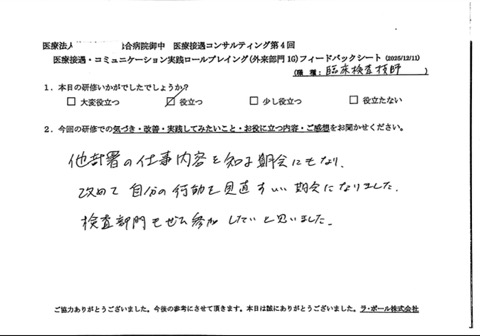 医療法人 合病院御中 医療接遇コンサルティング第4回
医療接遇・コミュニケーション実践ロールプレイング(外来部門16)フィードバックシート (2025/12/11)
(職 種: 臨床検査技師
1．本日の研修いかがでしたでしょうか?
□ 大変役立つ ☑ 役立つ □ 少し役立つ □ 役立たない
2．今回の研修での気づき・改善・実践してみたいこと・お役に立つ内容・ご感想をお聞かせください。
他部署の仕事内容を知る機会にもなり、
改めて自分の行動を見直すいい機会になりました。
検査部門もぜひ参加したいと思いました。
ご協力ありがとうございました。今後の参考にさせて頂きます。本日は誠にありがとうございました。 ラ・ポール株式会社